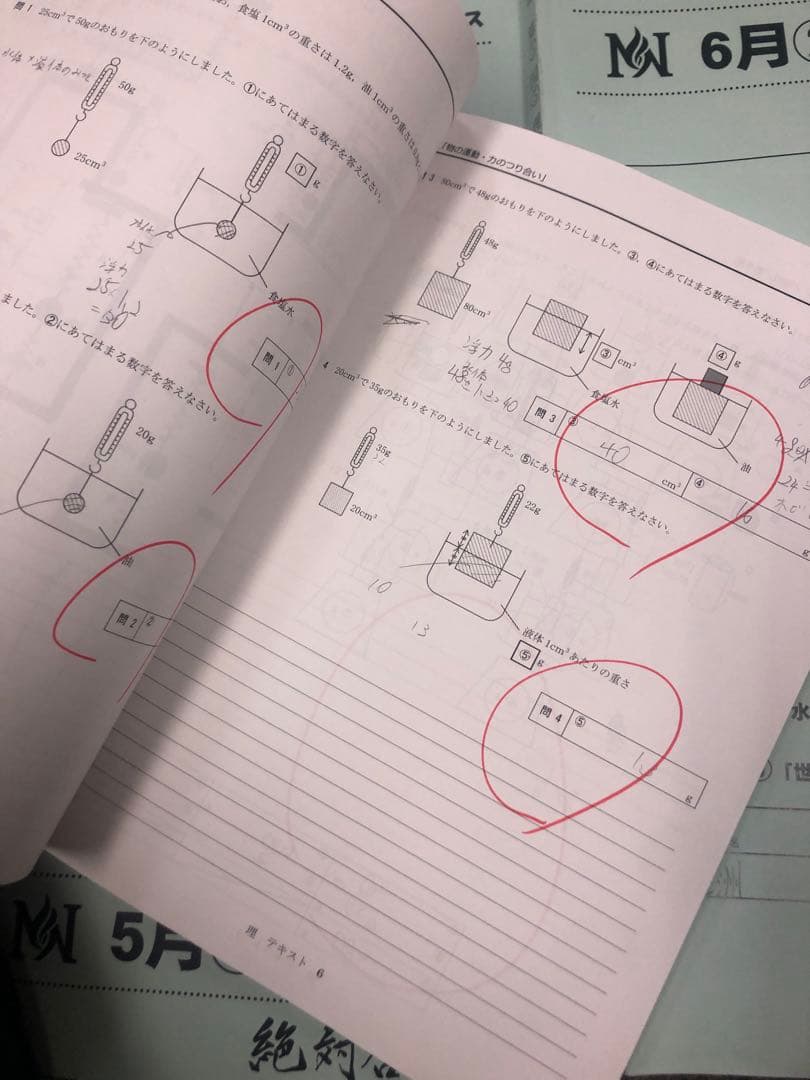 食塩1cm³の重さは1.2g，油1cm³の重さは0.8g
問1 25cm³で50gのおもりを下のようにしました。①にあてはまる数字を答えなさい。
50g
25cm³
① g
食塩水
25
浮力
問1 ①
ました。②にあてはまる数字を答えなさい。
20g
油
問2 ②
「物の運動・力のつり合い」
3 80cm³で48gのおもりを下のようにしました。③，④にあてはまる数字を答えなさい。
48g
80cm³
③ cm³
食塩水
④ g
油
浮力 48
48÷1.2=40
問3 ③ 40 cm³ ④ 16 g
4 20cm³で35gのおもりを下のようにしました。⑤にあてはまる数字を答えなさい。
35g
20cm³
22g
10
13
液体1cm³あたりの重さ
⑤ g
問4 ⑤ g
理 テキスト 6
ス
6月
5月
絶対
水
「世